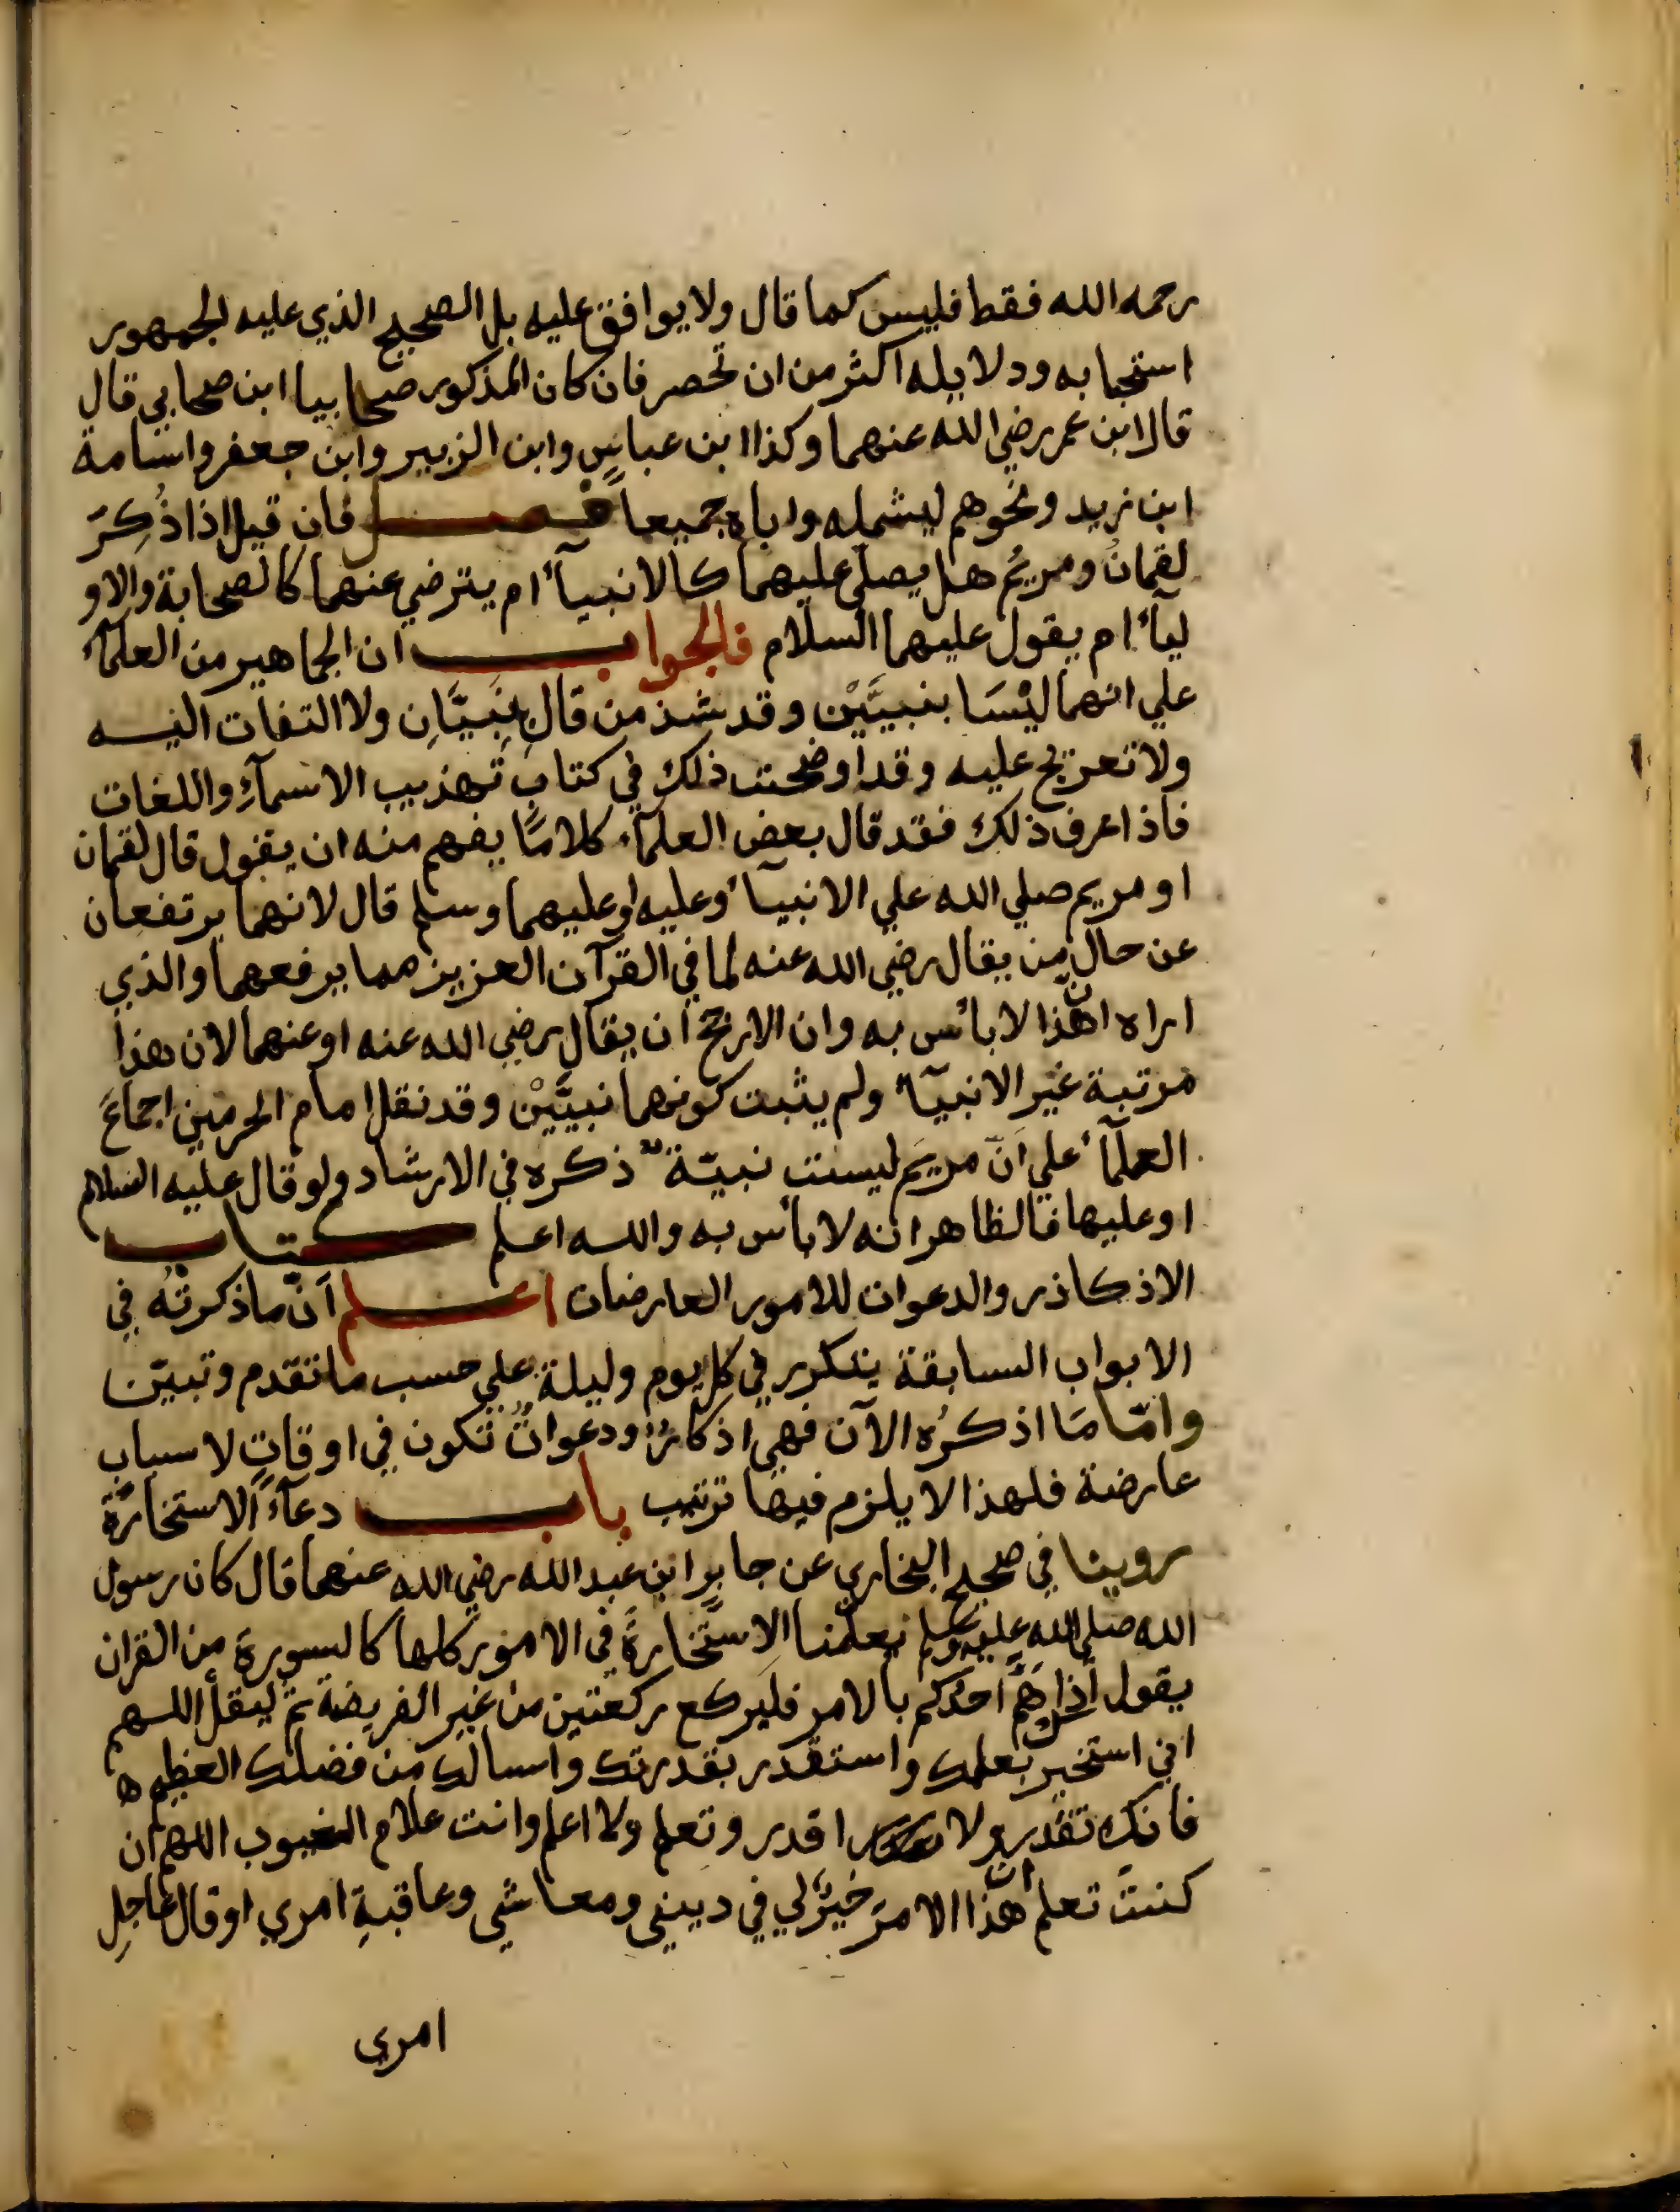 رحمه الله فقط فليس كما قال ولا يوافق عليه بل الصحيح الذي عليه الجمهور
استحبابه ودلايله اكثر من ان تحصر فان كان المذكور صحابيا ابن صحابي قال
قال ابن عمر رضي الله عنهما وكذا ابن عباسٍ وابن الزبير وابن جعفر واسامة
ابن زيد ونحوهم ليشمله واباه جميعا فصل فان قيل اذا ذُكِرَ
لقمانُ ومريمُ هل يصلّى عليهما كالانبيآء ام يترضي عنهما كالصحابة والاو
ليآء ام يقول عليهما السلام فالجواب ان الجماهير من العلمآء
علي انهما ليْسَا بنبيَّيْن وقد شذ من قال نبيَّانِ ولا التفات اليه
ولا تعريج عليه وقد اوضحت ذلك في كتاب تهذيب الاسمآءِ واللغات
فاذا عرف ذلك فقد قال بعض العلمآء كلامًا يفهم منه ان يقول قال لقمان
او مريم صلي الله علي الانبيآء وعليه او عليهما وسلم قال لانهما يرتفعان
عن حال من يقال رضي الله عنه لما في القرآن العزيز مما يرفعهما والذي
اراه ان هذا لا بأس به وان الارجح ان يقال رضي الله عنه او عنهما لان هذا
مرتبة غير الانبيآء ولم يثبت كونهما نبيَّيْن وقد نقل امام الحرمين اجماعَ
العلمآء علي انّ مريَم ليست نبيّة ذكره في الارشاد ولو قال عليه السلام
او عليها فالظاهر انه لا بأس به والله اعلم كتاب
الاذكار والدعوات للامور العارضات اعلم انّ ما ذكرتُه في
الابواب السابقة يتكرر في كل يوم وليلة علي حسب ما تقدم وتبيّن
وامّا مَا اذكرُه الآن فهي اذكارٌ ودعواتٌ تكون في اوقاتٍ لاسباب
عارضة فلهذا لا يلزم فيها ترتيب باب دعآءُ الاستخارة
روينا في صحيح البخاري عن جابرِ ابن عبد الله رضي الله عنهما قال كان رسول
الله صلي الله عليه وسلم يعلّمنا الاستخارةَ في الامور كلها كالسورة من القران
يقول اذا همّ احدكم بالامر فليركع ركعتين من غير الفريضة ثمّ ليقل اللهم
اني استخيرك بعلمك واستقدر بقدرتك واسالك من فضلك العظيم
فانك تقدر ولا اقدر وتعلم ولا اعلم وانت علام الغيوب اللهم ان
كنتَ تعلم ان هذا الامرَ خيرٌ لي في ديني ومعاشي وعاقبةِ امري او قال عاجِلِ
امري